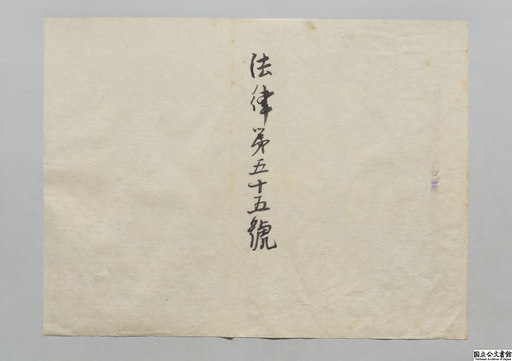 法律第五十五號
国立公文書館
National Archives of Japan